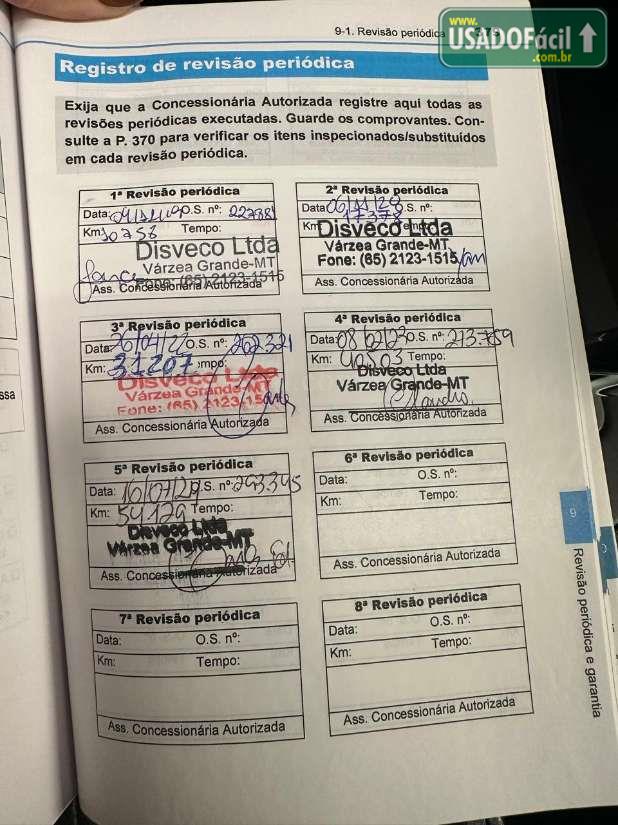 9-1. Revisão periódica
www.
USADOFácil
.com.br
Registro de revisão periódica
Exija que a Concessionária Autorizada registre aqui todas as
revisões periódicas executadas. Guarde os comprovantes. Con-
sulte a P. 370 para verificar os itens inspecionados/substituídos
em cada revisão periódica.
1ª Revisão periódica
Data: O.S. nº:
Km: 10758 Tempo:
Disveco Ltda
Várzea Grande-MT
Fone: (65) 2123-1515
Ass. Concessionária Autorizada
2ª Revisão periódica
Data: O.S. nº:
Km: 17378 Tempo:
Disveco Ltda
Várzea Grande-MT
Fone: (65) 2123-1515
Ass. Concessionária Autorizada
3ª Revisão periódica
Data: 26/04/22 O.S. nº: 202.321
Km: 31207 Tempo:
Disveco Ltda
Várzea Grande-MT
Fone: (65) 2123-1515
Ass. Concessionária Autorizada
4ª Revisão periódica
Data: 08/2/23 O.S. nº: 213.759
Km: 40503 Tempo:
Disveco Ltda
Várzea Grande-MT
Ass. Concessionária Autorizada
5ª Revisão periódica
Data: 16/07/24 O.S. nº: 243.395
Km: 54129 Tempo:
Disveco Ltda
Várzea Grande-MT
Ass. Concessionária Autorizada
6ª Revisão periódica
Data: O.S. nº:
Km: Tempo:
Ass. Concessionária Autorizada
7ª Revisão periódica
Data: O.S. nº:
Km: Tempo:
Ass. Concessionária Autorizada
8ª Revisão periódica
Data: O.S. nº:
Km: Tempo:
Ass. Concessionária Autorizada
9
Revisão periódica e garantia
ssa